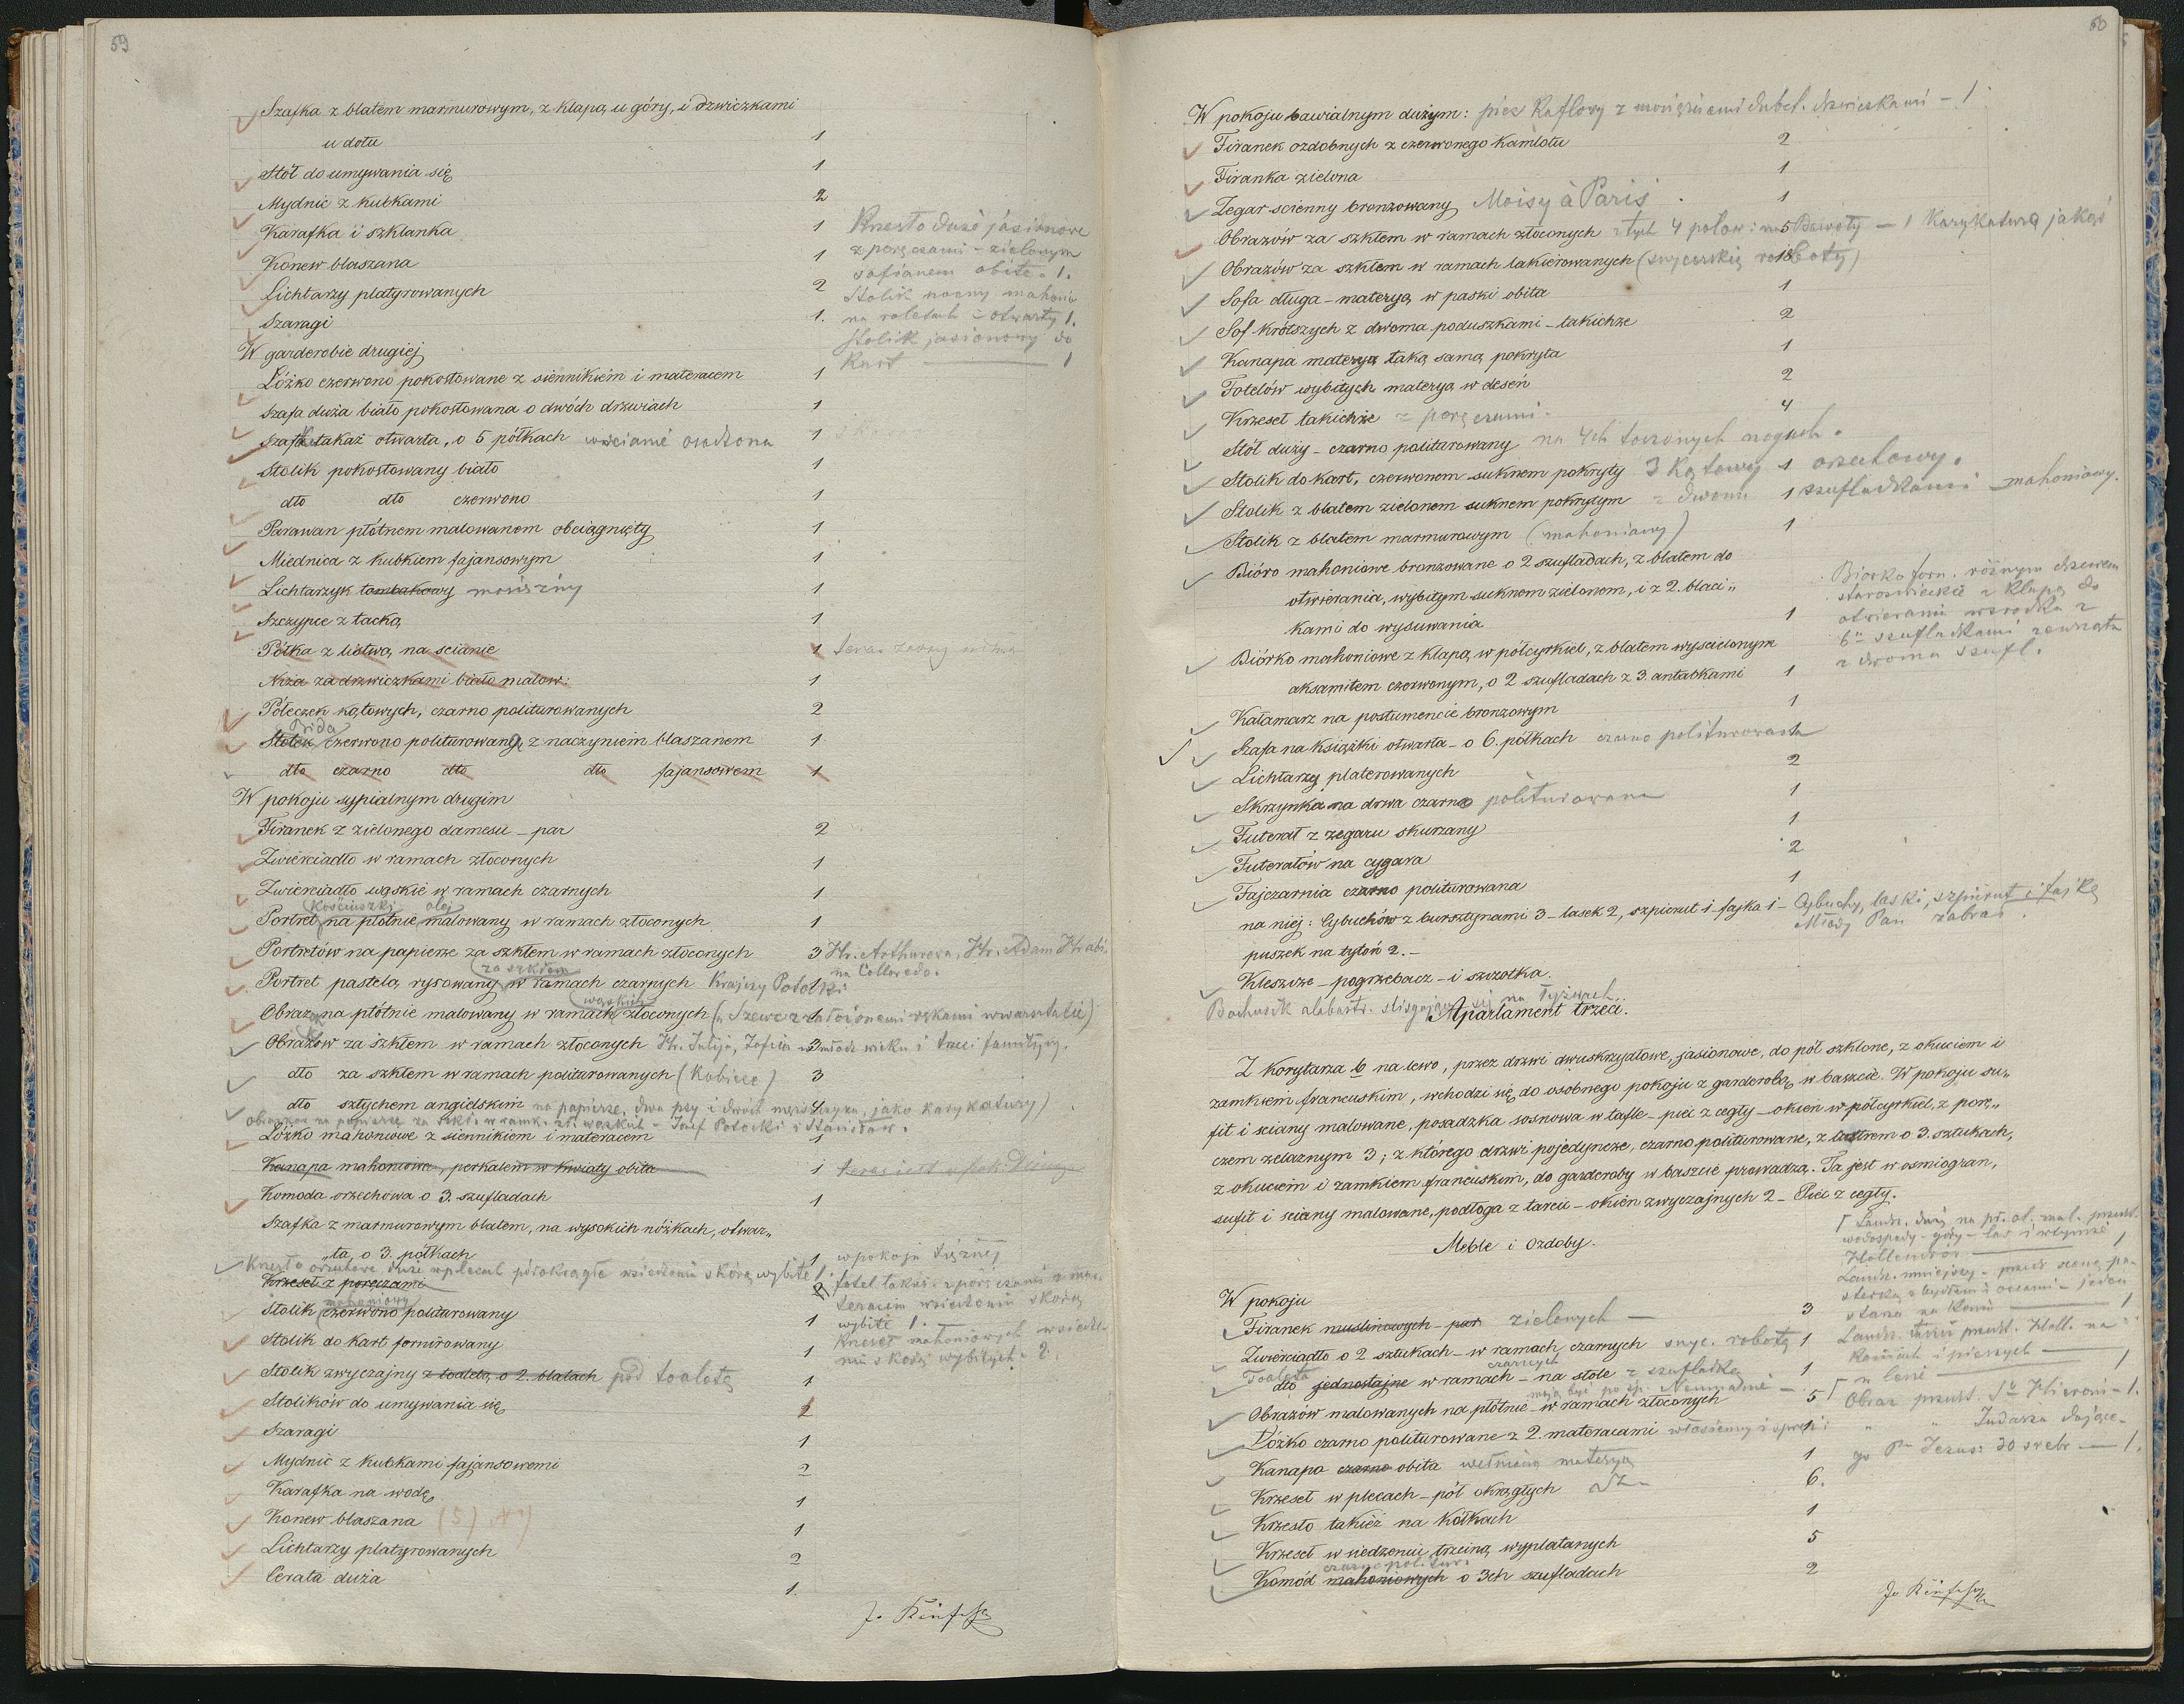 59
Szafka z blatem marmurowym, z klapą u góry, i drzwiczkami
u dołu 1
Stół do umywania się 1
Mydnic z kubkami 2
Karafka i szklanka 1
Konew blaszana 1
Lichtarzy platyrowanych 2
Szaragi 1.
Krzesło duże jasionowe
z poręczami - zielonym
safianem obite - 1.
Stolik nocny mahoni
na roletach - otwarty 1.
Stolik jasionowy do
Kart 1
W garderobie drugiej
Łóżko czerwono pokostowane z siennikiem i materacem 1
Szafa duża biało pokostowana o dwóch drzwiach 1
Szafka takaż otwarta, o 5 półkach w ścianie osadzona 1
Stolik pokostowany biało 1
dto dto czerwono 1
Parawan płótnem malowanem obciągnięty 1
Miednica z kubkiem fajansowym 1
Lichtarzyk tombakowy mosiężny 1
Szczypce z tacką 1
Półka z listwą na scianie 1 teraz
Niża za drzwiczkami biało malow: 1
Półeczek kątowych, czarno politurowanych 2
Stołek Bida czerwono politurowany z naczyniem blaszanem 1
dto czarno dto dto fajansowem 1
W pokoju sypialnym drugim
Firanek z zielonego damesu - par 2
Zwierciadło w ramach złoconych 1
Zwierciadło wąskie w ramach czarnych 1
Kościuszki olej
Portret na płótnie malowany w ramach złoconych 1
Portretów na papierze za szkłem w ramach złoconych 3 Hr. Arthurowa, Hr. Adam Hrabi
na Colloredo.
za szkłem
Portret pastelą rysowany w ramach czarnych Krajczy Potocki 1
wąskich
Obraz na płótnie malowany w ramach złoconych (Szewc z założonemi rękami w warsztacie) 1
Obrazów za szkłem w ramach złoconych Hr. Julija, Zofia w młod. wieku i trzeci familijny. 3
dto za szkłem w ramach politurowanych (Kobiece) 3
dto sztychem angielskim na papierze, dwa psy i dwóch mężczyzn, jako karykatury) 4
obrazków na papierze za szkł. w ramk. zł. wązkich - Józef Potocki i Stanisław.
Łóżko mahoniowe z siennikiem i materacem 1
Kanapa mahoniowa, perkalem w kwiaty obita 1 teraz jest w pok.
Komoda orzechowa o 3. szufladach 1
Szafka z marmurowym blatem, na wysokich nóżkach, otwar„
„ta, o 3. półkach 1 w pokoju
Krzesło orzechowe duże w plecach półokrągłe w siedzeniu skórą wybite 1.
Krzeseł z poręczami 2 fotel takiż z poręczami z ma
teracem w siedzeniu skórą
wybite 1.
mahoniowy
Stolik czerwono politurowany 1
Krzeseł mahoniowych w siedze
niu skórą wybitych - 2.
Stolik do kart fornirowany 1
Stolik zwyczajny z toaletą o 2. blatach pod toaletę 1
Stolików do umywania się 2
Szaragi 1
Mydnic z kubkami fajansowemi 2
Karafka na wodę 1
Konew blaszana (5) 1
Lichtarzy platyrowanych 2
Cerata duża 1.
60
W pokoju bawialnym dużym: piec Kaflowy z mosiężnemi dubel. drzwiczkami - 1
Firanek ozdobnych z czerwonego Kamlotu 2
Firanka zielona 1
Zegar scienny bronzowany Moisy à Paris 1
Obrazów za szkłem w ramach złoconych z tych 4 polow: na 5 - 1 Karykatura jakaś
Obrazów za szkłem w ramach lakierowanych (snycerskiej roboty) 18
Sofa długa - materyą w paski obita 1
Sof krótszych z dwoma poduszkami - takichże 2
Kanapa materyą taką samą pokryta 1
Fotelów wybitych materyą w deseń 2
Krzeseł takichże z poręczami. 4
Stół duży - czarno politurowany na 4ch toczonych nogach.
Stolik do kart, czerwonem suknem pokryty 3 kątowy 1 orzechowy.
Stolik z blatem zielonem suknem pokrytym z dwoma 1 szufladkami - mahoniowy.
Stolik z blatem marmurowym (mahoniowy) 1
Bióro mahoniowe bronzowane o 2 szufladach, z blatem do
otwierania, wybitym suknem zielonem, i z 2. blaci„
kami do wysuwania 1
Biorko forn. różnym drzewem
staroswieckie z klapą do
otwierania wśrodku z
6u szufladkami zewnątrz
z dwoma szufl.
Biórko mahoniowe z klapą w półcyrkiel, z blatem wyscielonym
aksamitem czerwonym, o 2 szufladach z 3. antabkami 1
Kałamarz na postumencie bronzowym 1
Szafa na książki otwarta - o 6. półkach czarno politurowana 1
Lichtarzy platerowanych 2
Skrzynka na drwa czarno politurowana 1
Futerał z zegaru skurzany 1
Futerałów na cygara 2
Fajczarnia czarno politurowana 1
na niej: Cybuchów z bursztynami 3 - lasek 2, szpicrut 1 - fajka 1 - Cybuchy, laski, szpicrut i fajkę
Młody Pan zabrał.
puszek na tytoń 2. -
Kleszcze - pogrzebacz - i szczotka.
Bachusik alabastr. slizgający się na łyżwach.
Apartament trzeci.
Z korytarza b na lewo, przez drzwi dwuskrzydłowe, jasionowe, do pół szklone, z okuciem i
zamkiem francuskim, wchodzi się do osobnego pokoju z garderobą w baszcie. W pokoju su„
fit i sciany malowane, posadzka sosnowa w tafle - piec z cegły - okien w półcyrkiel, z porę„
czem żelaznym 3; z którego drzwi pojedyncze, czarno politurowane, z lustrem o 3. sztukach,
z okuciem i zamkiem francuskim, do garderoby w baszcie prowadzą. Ta jest w osmiogran,
sufit i sciany malowane, podłoga z tarcic - okien zwyczajnych 2 - Piec z cegły.
Meble i Ozdoby.
W pokoju
Firanek muslinowych - par zielonych - 3
Zwierciadło o 2 sztukach - w ramach czarnych snyc. roboty 1
Toaleta czarnych
dto jednostajne w ramach - na stole z szufladką 1
mają być po śp. Neumanie -
Obrazów malowanych na płótnie - w ramach złoconych 5
Łóżko czarno politurowane z 2. materacami włosienny i spręż: 1
Kanapa czarno obita wełnianą materyą 1
Krzeseł w plecach - pół okrągłych 6.
Krzesło takież na kółkach 1
Krzeseł w siedzeniu trzciną wyplatanych 5
czarno politur.
Komód mahoniowych o 3ch szufladach 2
Landsz. duży na pł. ol. mal. przedst.
wodospady - góry - las i wtymże
Hollendrów 1
Landsz. mniejszy - przed. scenę pa-
sterską z bydłem i owcami - jeden
stana na koniu 1
Landsz. także przedst. Holl. na
koniach i pieszych 1
Obraz przedst. Sgo Hieroni - 1.
" " Judasza dające-
go Pa Jezusa 30 srebr - 1.